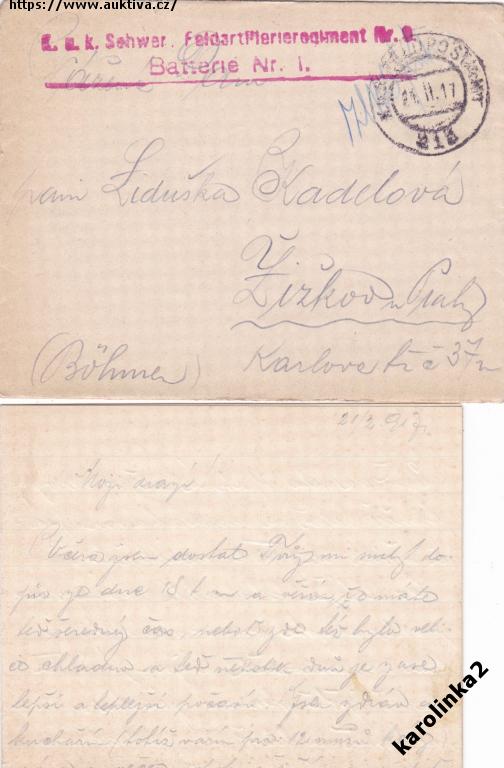 https://www.auktiva.cz/
K. u. k. Schwer. Feldartillerieregiment Nr. 9
Batterie Nr. 1.
21.II.17
212
Liduška Kadelová
Žižkov u Prahy
(Böhmen) Karlova tř č 37n
21/2 917
Moji drazí!
Včera jsem dostal Tvůj mi milý do-
pis ze dne 18 t m a věřím že máte
teď šeredný čas, neboť zde též bylo veli-
ce chladno a teď několik dnů je zase
lepší a teplejší počasí. Jsem zdráv a
kuchařím 12 mužů
karolinka2